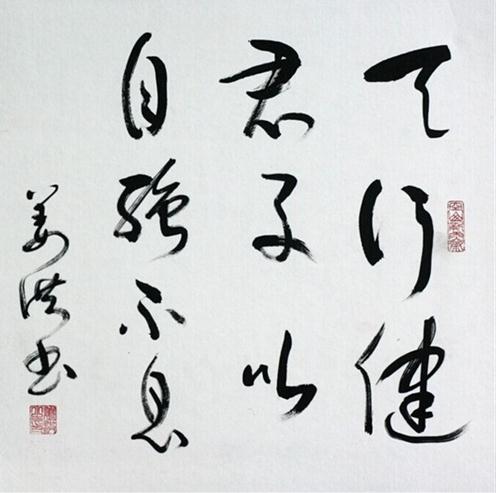 天行健
君子以
自強不息
姜洪书